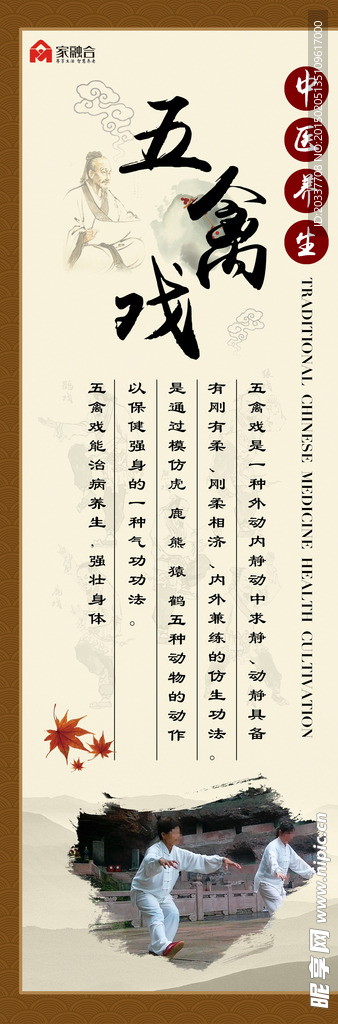 家融合
尊享生活 智慧养老
中医养生
五禽戏
TRADITIONAL CHINESE MEDICINE HEALTH CULTIVATION
五禽戏是一种外动内静动中求静、动静具备
有刚有柔、刚柔相济、内外兼练的仿生功法。
是通过模仿虎 鹿 熊 猿 鹤五种动物的动作
以保健强身的一种气功功法。
五禽戏能治病养生，强壮身体
昵享网 www.nipic.cn